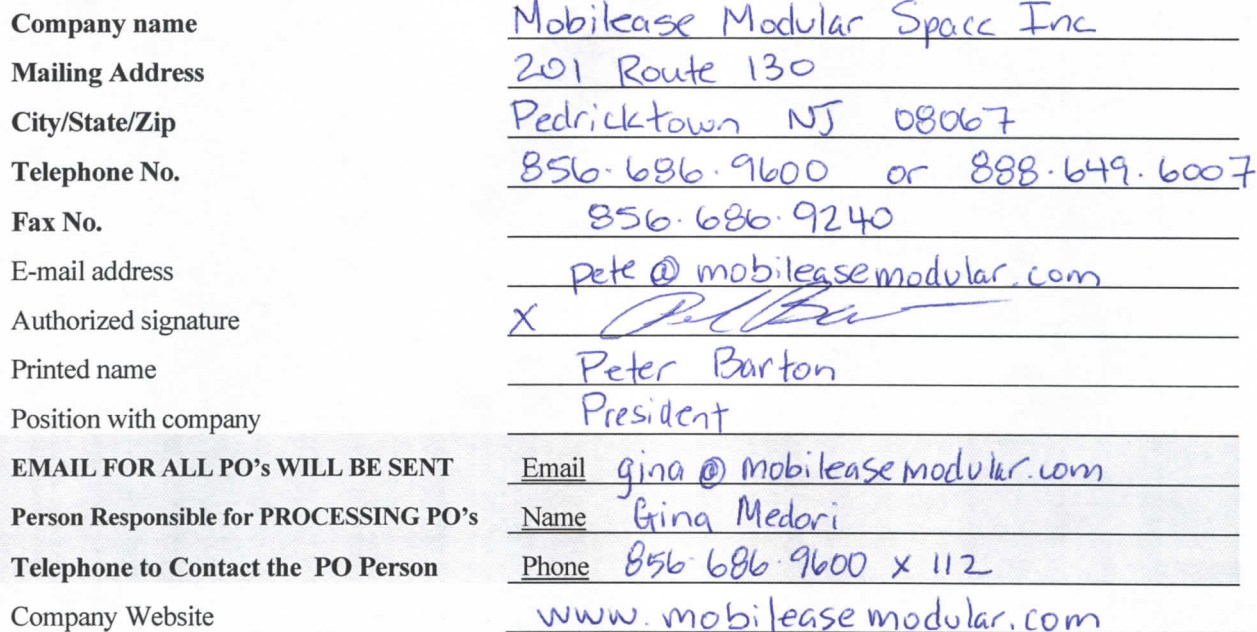 Company name Mobilease Modular Space Inc
Mailing Address 201 Route 130
City/State/Zip Pedricktown NJ 08067
Telephone No. 856.686.9600 or 888.649.6007
Fax No. 856.686.9240
E-mail address pete@mobileasemodular.com
Authorized signature X
Printed name Peter Barton
Position with company President
EMAIL FOR ALL PO's WILL BE SENT Email gina@mobileasemodular.com
Person Responsible for PROCESSING PO's Name Gina Medori
Telephone to Contact the PO Person Phone 856.686.9600 x 112
Company Website www.mobileasemodular.com